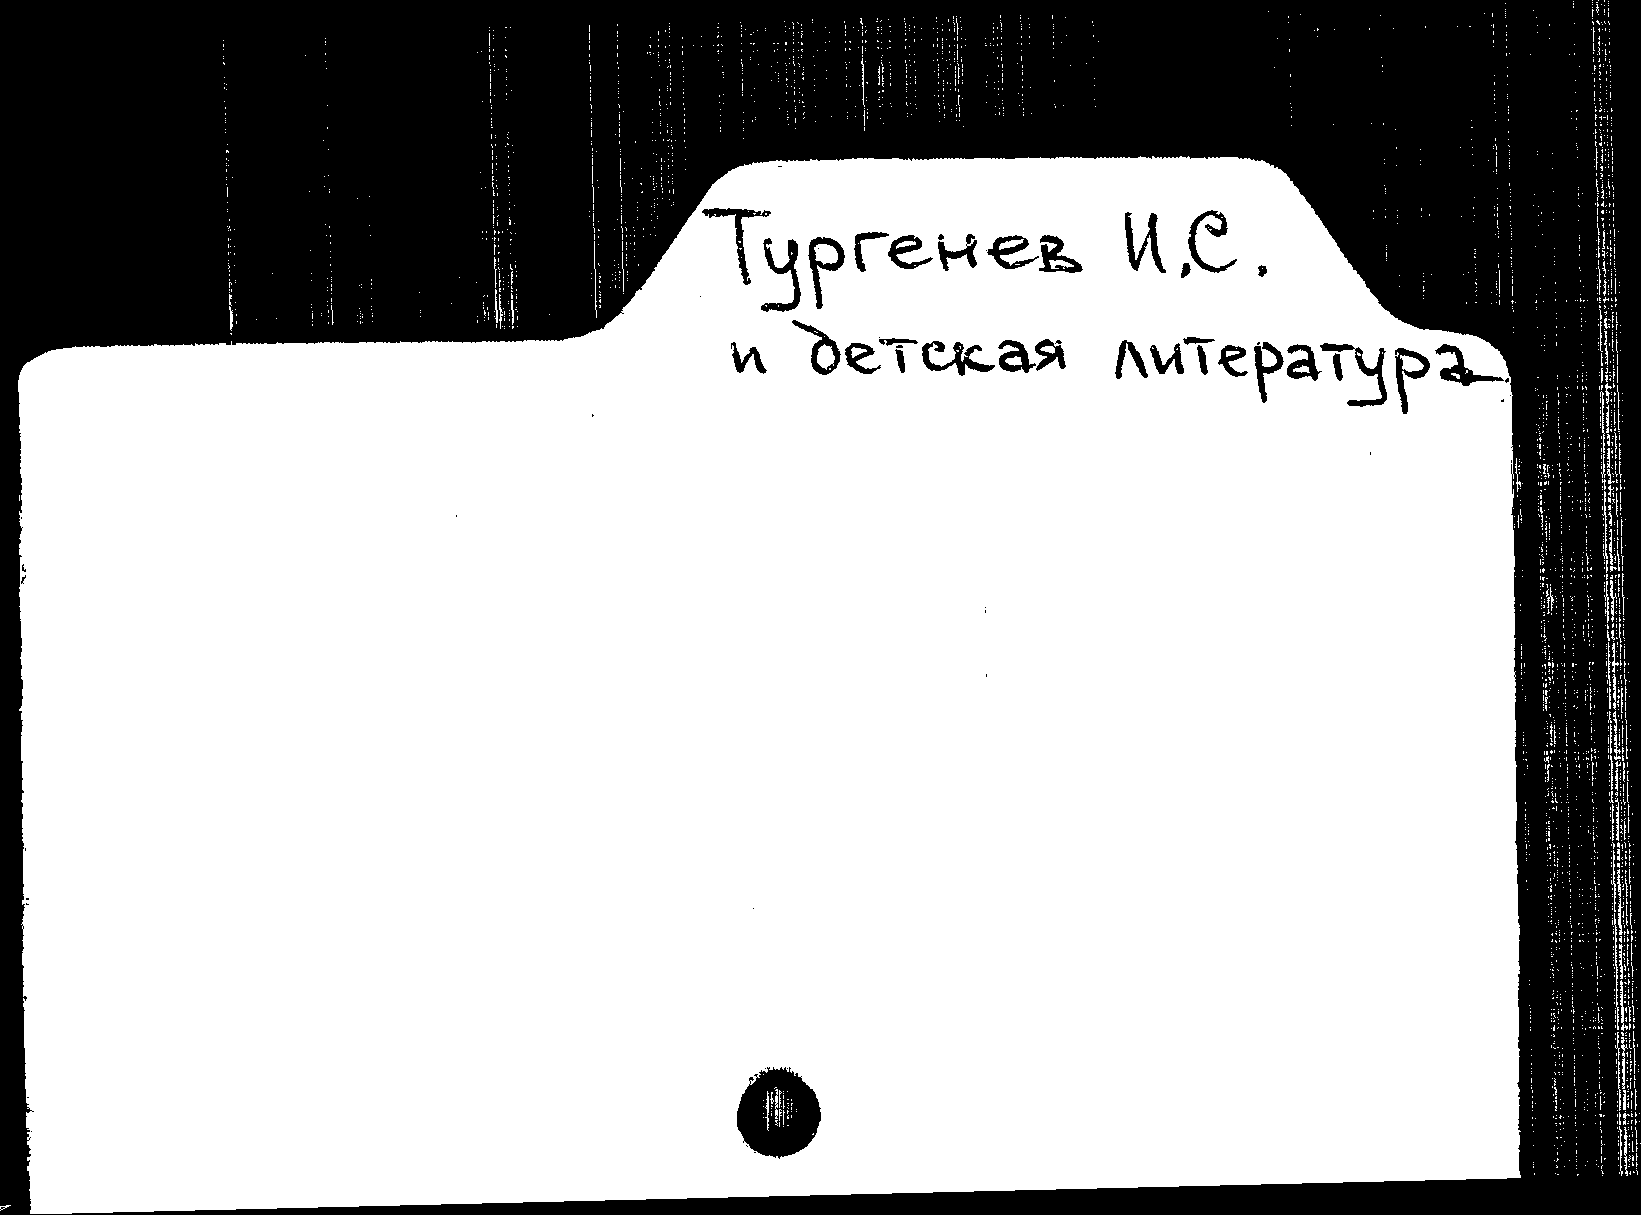 Тургенев И.С.
и детская литература